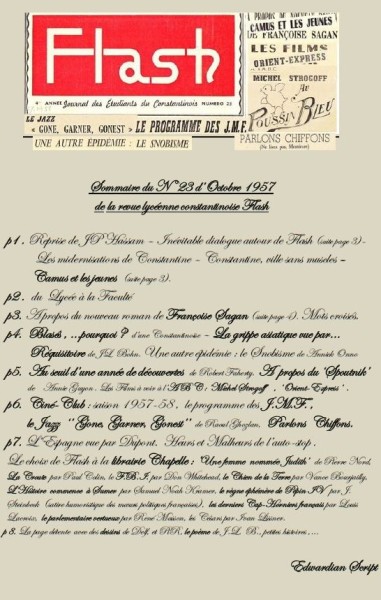 Flash
4e ANNÉE Journal des Étudiants du Constantinois NUMÉRO 23
CAMUS ET LES JEUNES
DE FRANÇOISE SAGAN
LES FILMS
ORIENT-EXPRESS
MICHEL STROGOFF
AU
POUSSIN BLEU
PARLONS CHIFFONS
LE JAZZ
« GONE, GARNER, GONEST » LE PROGRAMME DES J.M.F.
UNE AUTRE ÉPIDÉMIE : LE SNOBISME
Sommaire du N°23 d'Octobre 1957
de la revue lycéenne constantinoise Flash
p1. Reprise de JP Hassam - Inévitable dialogue autour de Flash (suite page 3) -
Les midernisations de Constantine - Constantine, ville sans muscles -
Camus et les jeunes (suite page 3).
p2. du Lycée à la Faculté
p3. A propos du nouveau roman de Françoise Sagan (suite page 4). Mots croisés.
p4. Blasés, ...pourquoi ? d'une Constantinoise - La grippe asiatique vue par...
Réquisitoire de J.L. Bohn. Une autre épidémie : le Snobisme de Annick Onno
p5. Au seuil d'une année de découvertes de Robert Fahorty. A propos du 'Spoutnik'
de Annie Guyon. Les Films à voir à l'A B C : Michel Strogoff, 'Orient-Express'.
p6. Ciné-Club : saison 1957-58, le programme des J.M.F.,
le Jazz "Gone, Garner, Gonest" de Raoul Ghozlan, Parlons Chiffons.
p7. L'Espagne vue par Dupont. Heurs et Malheurs de l'auto-stop.
Le choix de Flash à la librairie Chapelle : 'Une femme nommée Judith' de Pierre Nord,
La Croûte par Paul Colin, le F.B.I, par Don Whitehead, le Chien de la Terre par Vance Bourjailly,
L'Histoire commence à Sumer par Samuel Noah Kramer, le règne éphémère de Pépin IV par J.
Steinbeck (satire humoristique des mœurs politiques françaises), les derniers Cap-Horniers français par Louis
Lacroix, le parlementaire vertueux par René Masson, les Césars par Ivan Lissner.
p 8. La page détente avec des dessins de Dolf, et PUR, le poème de J.L. B., petites histoires ....
Edwardian Script